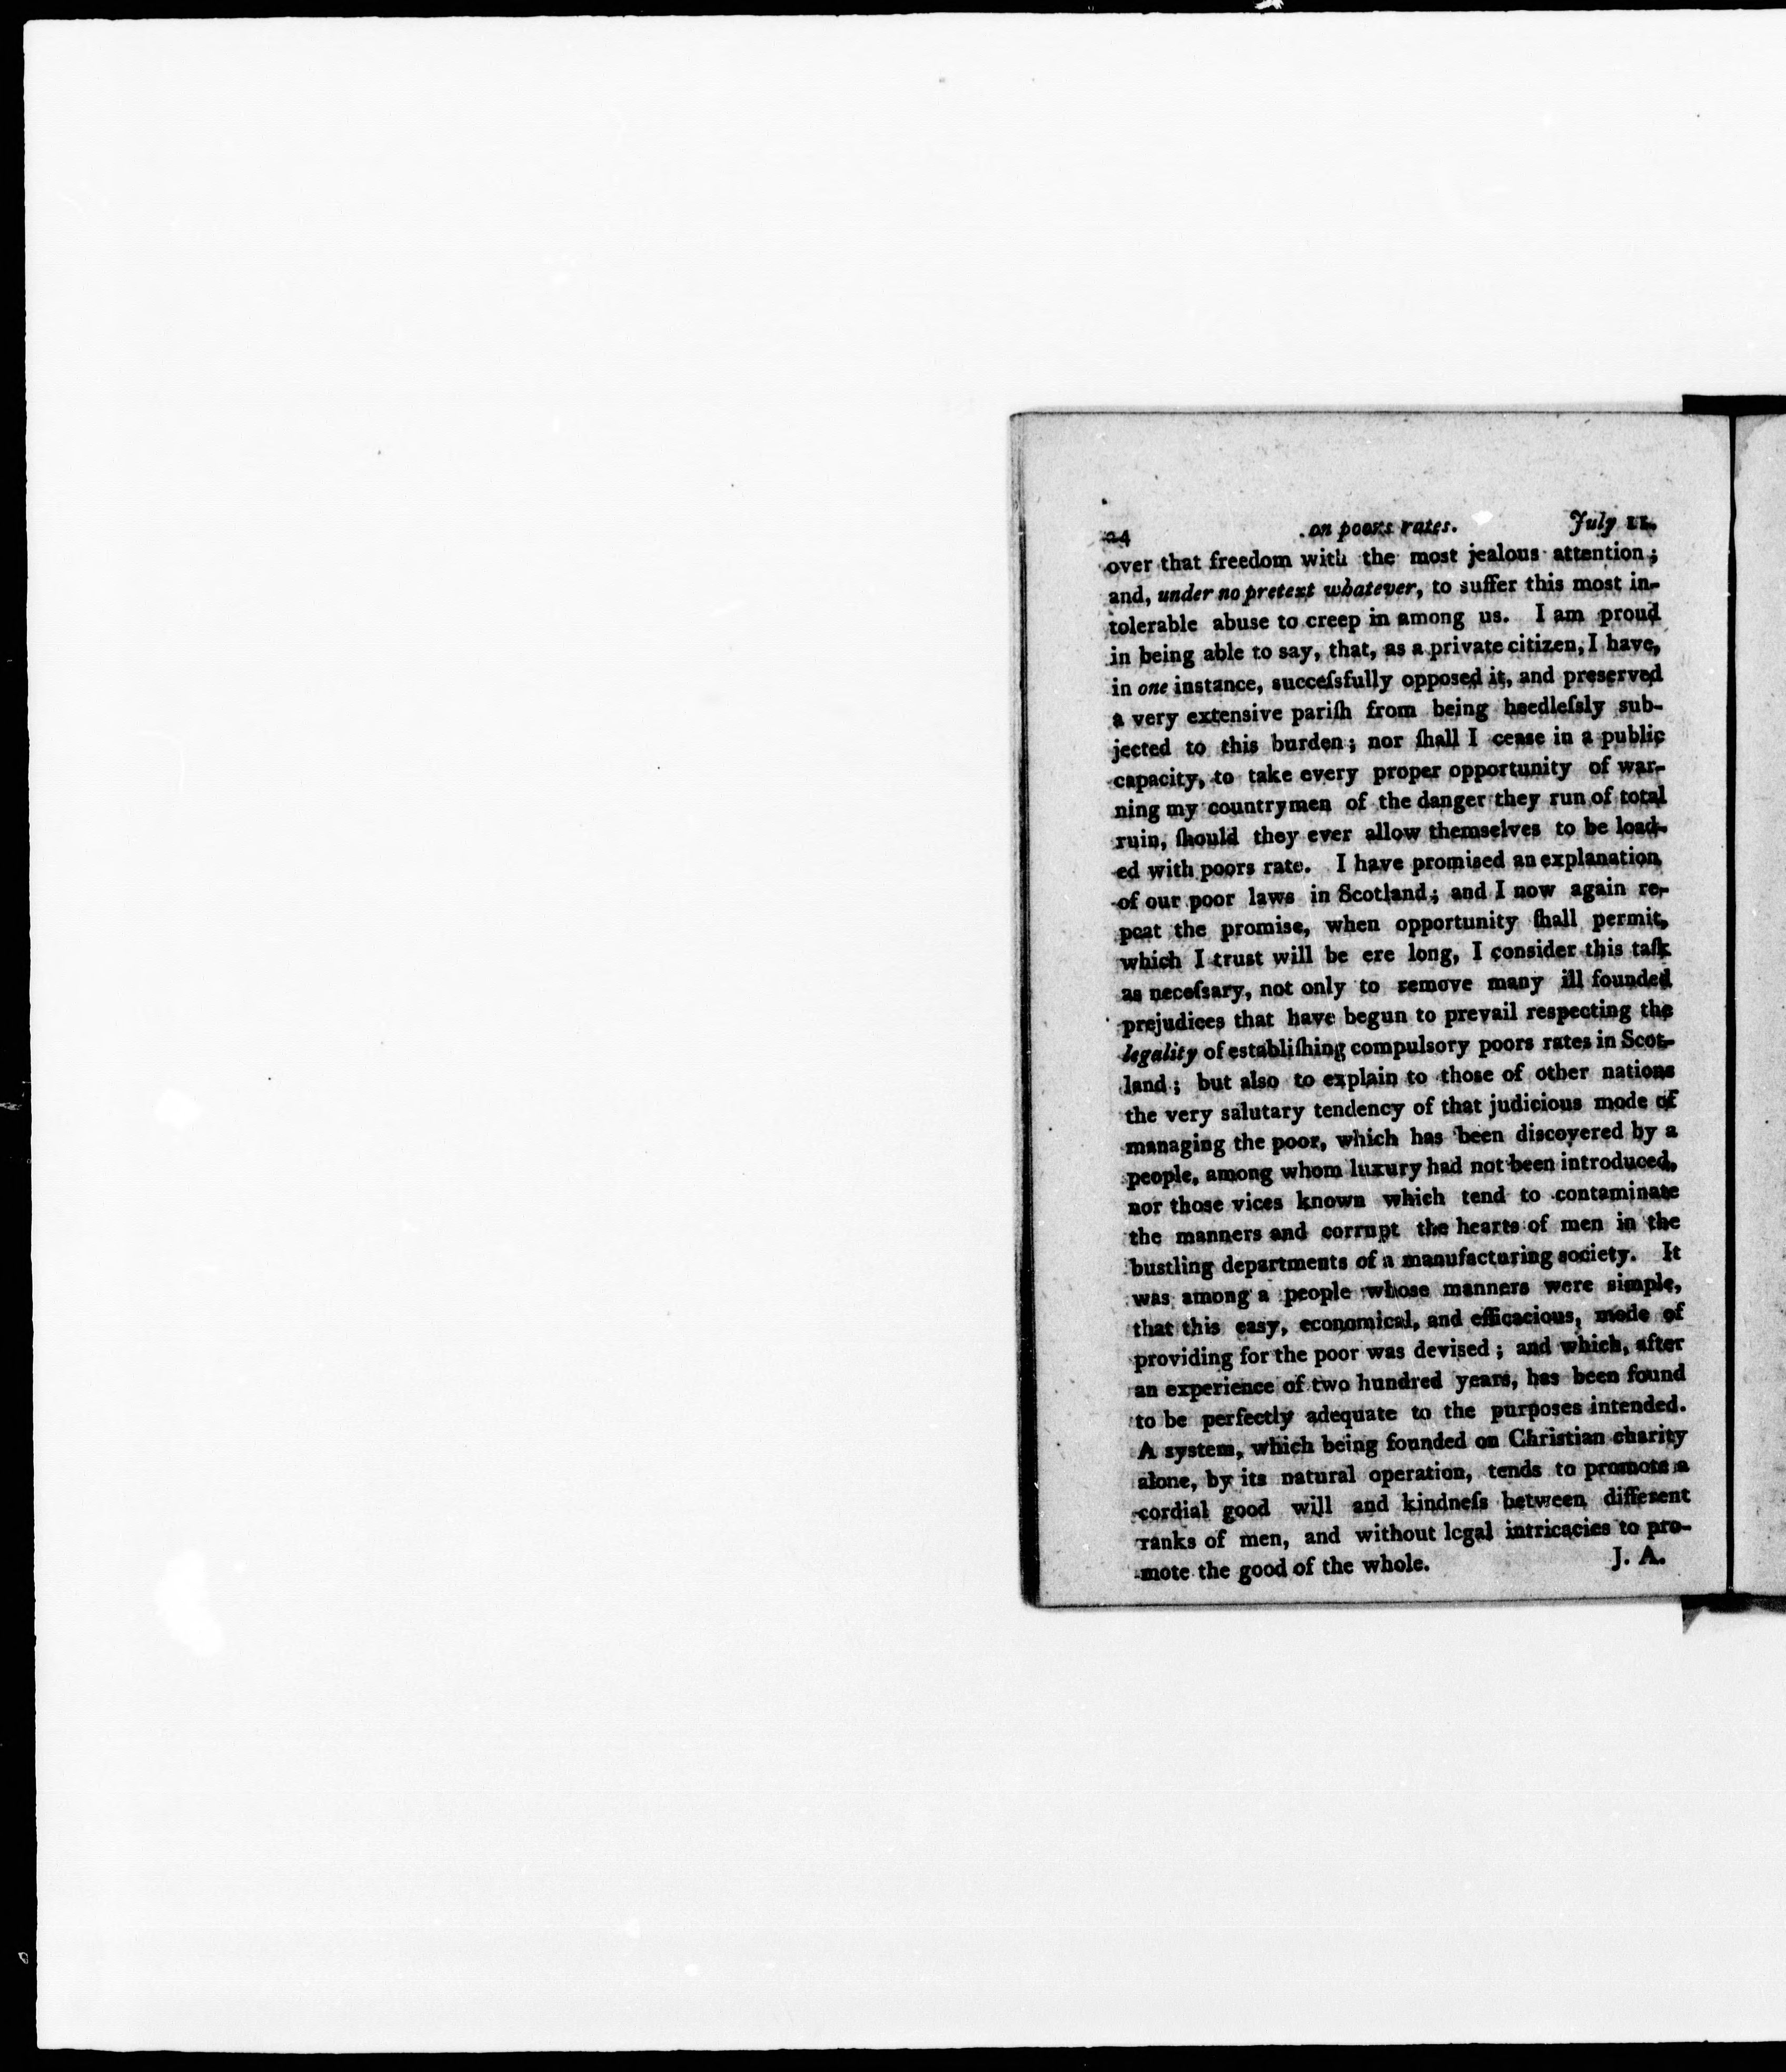 24 on poors rates. July 11.
over that freedom with the most jealous attention;
and, under no pretext whatever, to suffer this most in-
tolerable abuse to creep in among us. I am proud
in being able to say, that, as a private citizen, I have,
in one instance, succeſsfully opposed it, and preserved
a very extensive pariſh from being heedleſsly sub-
jected to this burden; nor ſhall I cease in a public
capacity, to take every proper opportunity of war-
ning my countrymen of the danger they run of total
ruin, ſhould they ever allow themselves to be load-
ed with poors rate. I have promised an explanation
of our poor laws in Scotland; and I now again re-
peat the promise, when opportunity ſhall permit,
which I trust will be ere long, I consider this taſk
as neceſsary, not only to remove many ill founded
prejudices that have begun to prevail respecting the
legality of establiſhing compulsory poors rates in Scot-
land; but also to explain to those of other nations
the very salutary tendency of that judicious mode of
managing the poor, which has been discovered by a
people, among whom luxury had not been introduced,
nor those vices known which tend to contaminate
the manners and corrupt the hearts of men in the
bustling departments of a manufacturing society. It
was among a people whose manners were simple,
that this easy, economical, and efficacious, mode of
providing for the poor was devised; and which, after
an experience of two hundred years, has been found
to be perfectly adequate to the purposes intended.
A system, which being founded on Christian charity
alone, by its natural operation, tends to promote a
cordial good will and kindneſs between different
ranks of men, and without legal intricacies to pro-
mote the good of the whole. J. A.